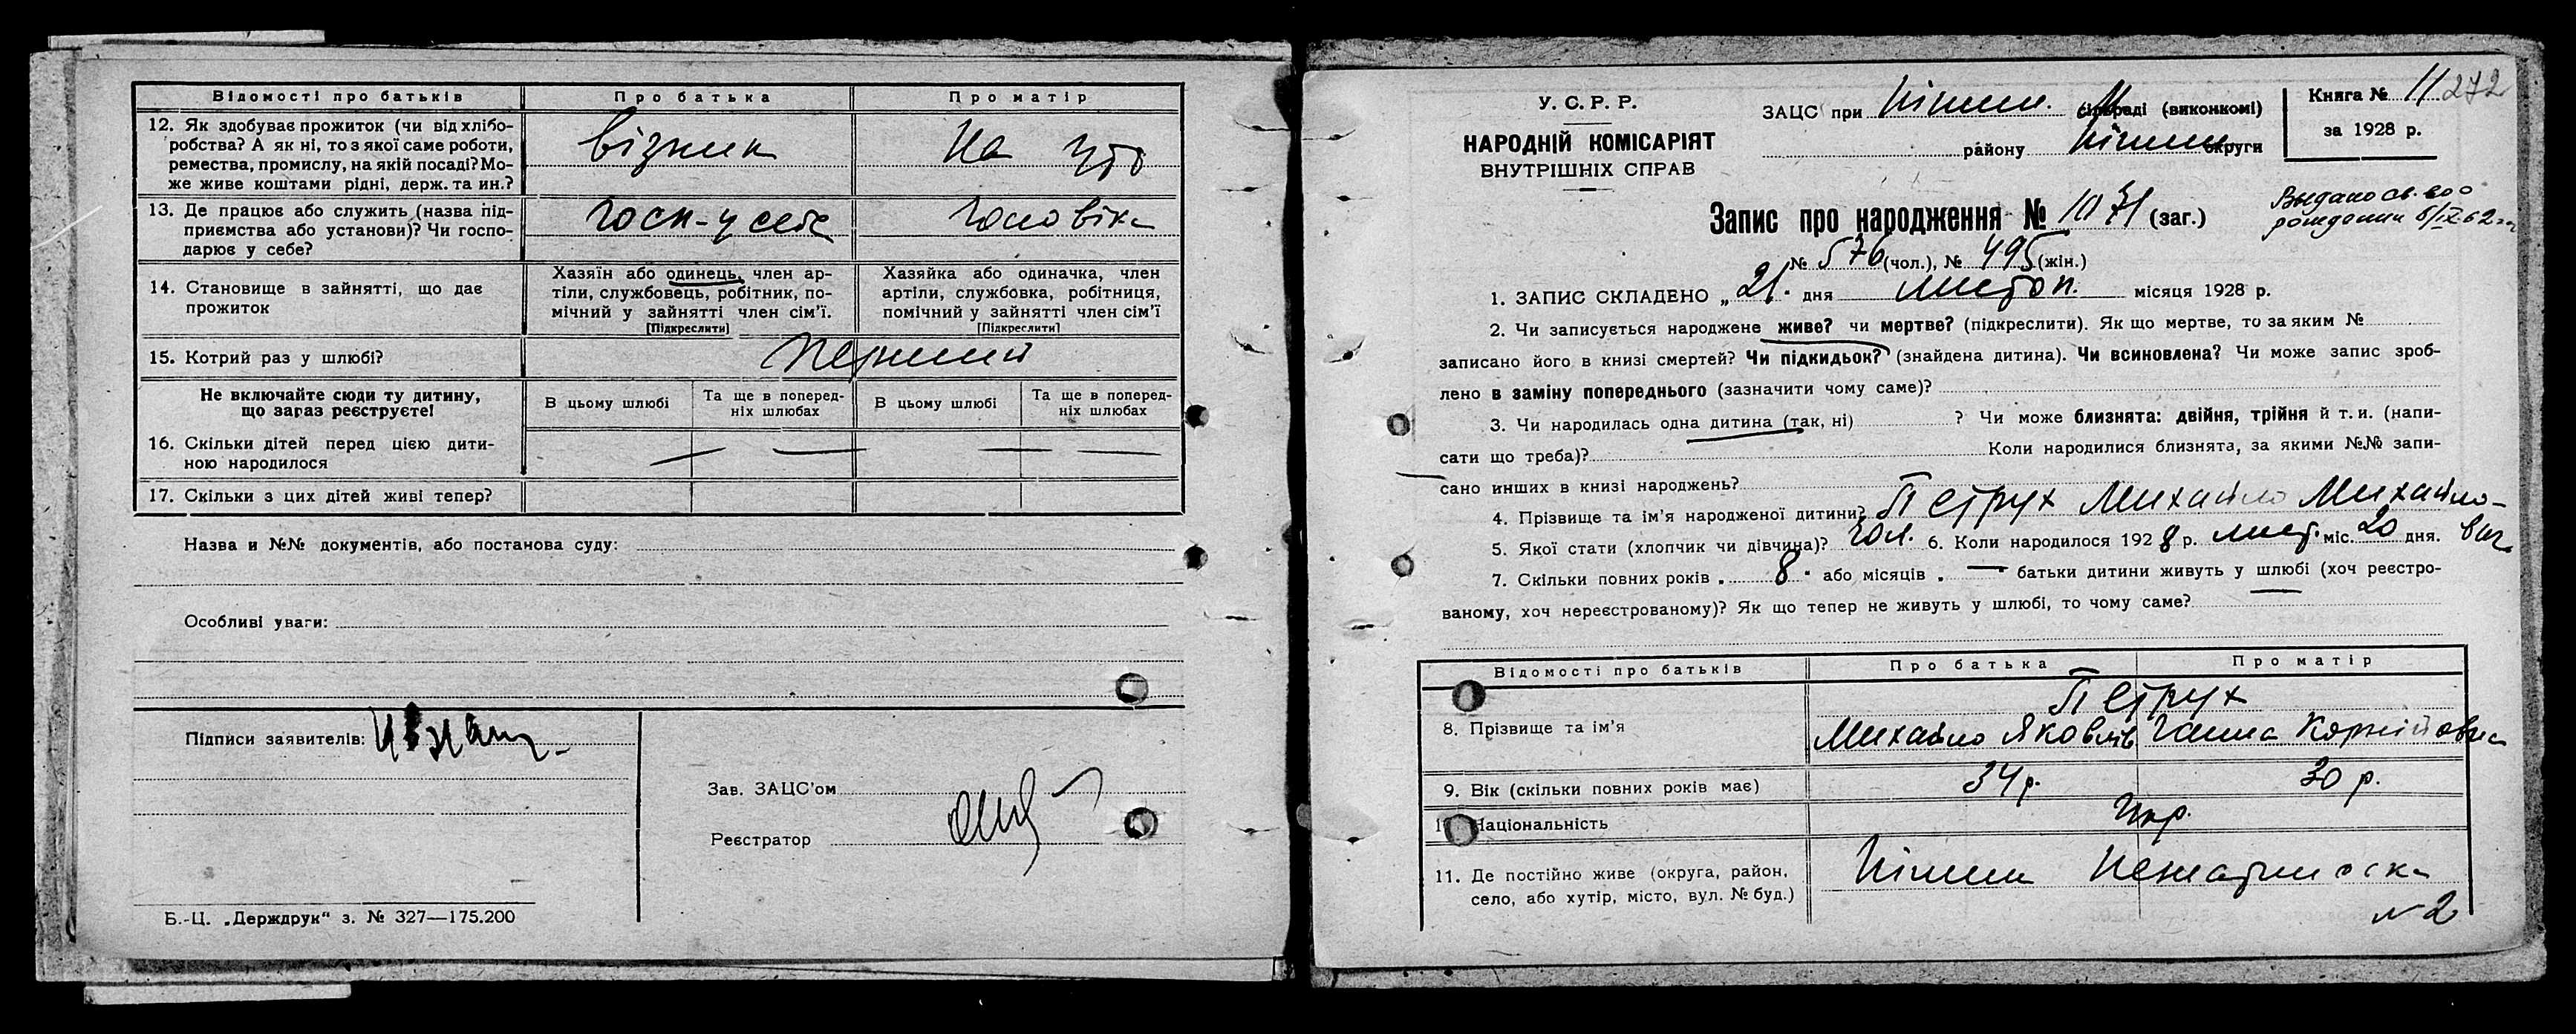 Відомості про батьків Про батька Про матір
12. Як здобуває прожиток (чи від хлібо-
робства? А як ні, то з якої саме роботи,
ремества, промислу, на якій посаді? Мо-
же живе коштами рідні, держ. та ин.?
візник На ут
13. Де працює або служить (назва під-
приємства або установи)? Чи госпо-
дарює у себе?
госп-у себе чоловіка
14. Становище в зайнятті, що дає
прожиток
Хазяїн або одинець, член ар-
тіли, службовець, робітник, по-
мічний у зайнятті член сім'ї.
[Підкреслити]
Хазяйка або одиначка, член
артіли, службовка, робітниця,
помічний у зайнятті член сім'ї
[Підкреслити]
15. Котрий раз у шлюбі? перший
Не включайте сюди ту дитину,
що зараз реєструєте!
В цьому шлюбі
Та ще в поперед-
ніх шлюбах
В цьому шлюбі
Та ще в поперед-
ніх шлюбах
16. Скільки дітей перед цією дити-
ною народилося — — — —
17. Скільки з цих дітей живі тепер?
Назва и №№ документів, або постанова суду:
Особливі уваги:
Підписи заявителів:
Зав. ЗАЦС'ом
Реєстратор
Б.-Ц. „Держдрук" з. № 327—175.200
У. С. Р. Р.
НАРОДНІЙ КОМІСАРІЯТ
ВНУТРІШНІХ СПРАВ
ЗАЦС при Ніжин. М сільраді (виконкомі)
району Ніжин округи
Книга № 11 272
за 1928 р.
Запис про народження № 1071 (заг.)
Выдано св. во о
рождении 6/IX-62 г.
№ 576 (чол.), № 495 (жін.)
1. ЗАПИС СКЛАДЕНО „21" дня листоп. місяця 1928 р.
2. Чи записується народжене живе? чи мертве? (підкреслити). Як що мертве, то за яким №
записано його в книзі смертей? Чи підкидьок? (знайдена дитина). Чи всиновлена? Чи може запис зроб-
лено в заміну попереднього (зазначити чому саме)?
3. Чи народилась одна дитина (так, ні) ? Чи може близнята: двійня, трійня й т. и. (напи-
сати що треба)? Коли народилися близнята, за якими №№ запи-
сано инших в книзі народжень?
4. Прізвище та ім'я народженої дитини? Петрух Михайло Михайло-
вич
5. Якої стати (хлопчик чи дівчина)? чол. 6. Коли народилося 1928 р. лист. міс. 20 дня.
7. Скільки повних років „ 8 " або місяців „ — " батьки дитини живуть у шлюбі (хоч реєстро-
ваному, хоч нереєстрованому)? Як що тепер не живуть у шлюбі, то чому саме?
Відомості про батьків Про батька Про матір
Петрух
8. Прізвище та ім'я Михайло Яковлів Ганна Корнійовна
9. Вік (скільки повних років має) 34 р. 30 р.
Національність Укр.
11. Де постійно живе (округа, район,
село, або хутір, місто, вул. № буд.)
Ніжин
№ 2